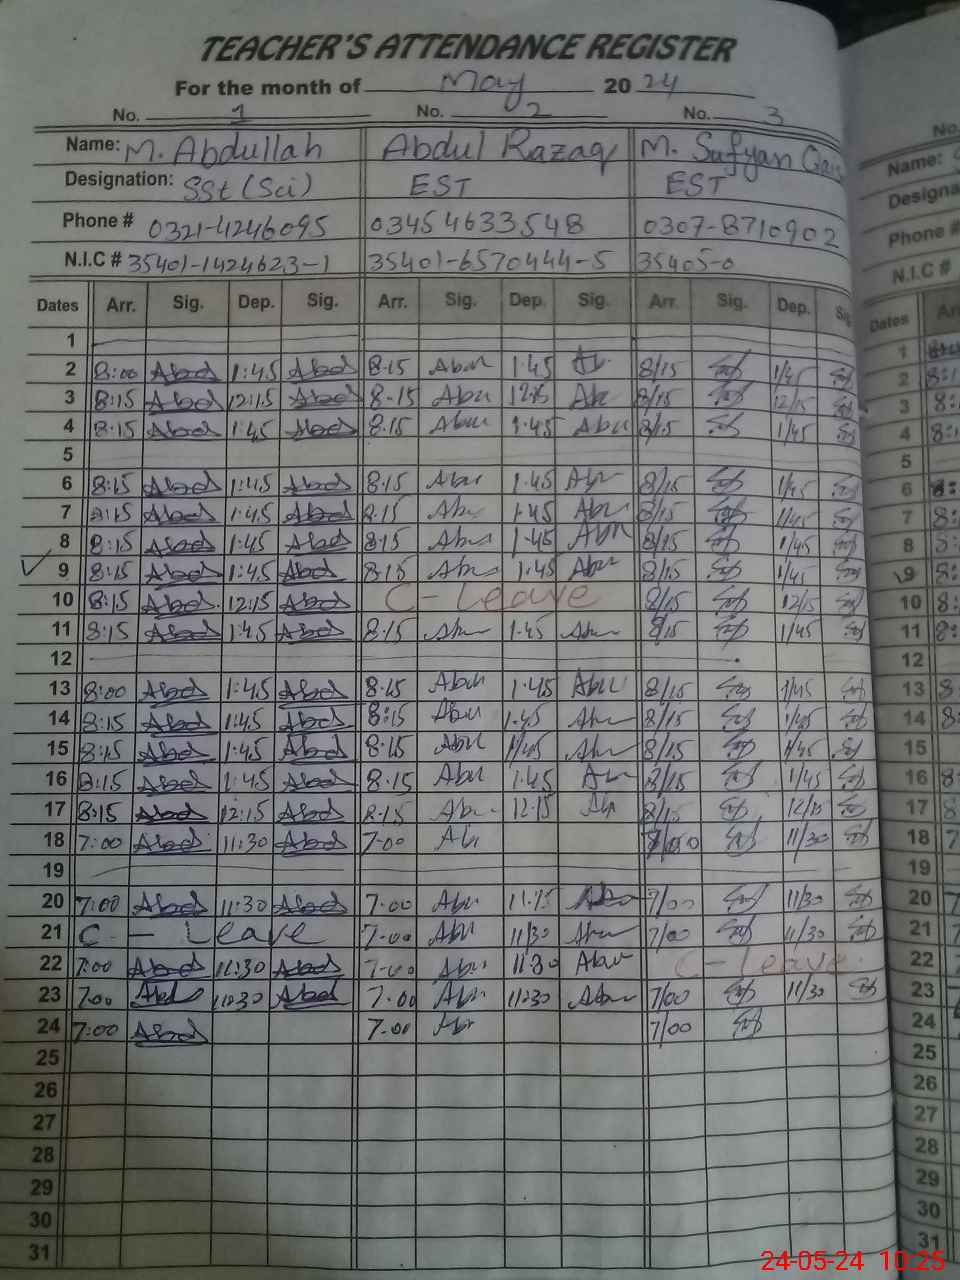 TEACHER'S ATTENDANCE REGISTER
For the month of May 2024
No. 1 No. 2 No. 3
Name: M. Abdullah Abdul Razaq M. Sufyan
Designation: SSt (Sci) EST EST
Phone # 0321-4246095 03454633548 0307-8710902
N.I.C # 35401-1424623-1 35401-6570444-5 35405-0
Dates Arr. Sig. Dep. Sig. Arr. Sig. Dep. Sig. Arr. Sig. Dep. Sig
1
2 8:00 Abd 1:45 Abd 8:15 Abu 1:45 8/15 1/45
3 8:15 Abd 12:15 Abd 8-15 Abu 8/15 12/15
4 8:15 Abd 1:45 Abd 8:15 Abu 1:45 Abu 8/15 1/45
5
6 8:15 Abd 1:45 Abd 8:15 Abu 1:45 Abu 8/15 1/45
7 8:15 Abd 1:45 Abd 8:15 Abu 1:45 Abu 8/15 1/45
8 8:15 Abd 1:45 Abd 8:15 Abu 1:45 Abu 8/15 1/45
9 8:15 Abd 1:45 Abd 8:15 Abu 1:45 Abu 8/15 1/45
10 8:15 Abd 12:15 Abd C- Leave 8/15 12/15
11 8:15 Abd 1:45 Abd 8:15 Abu 1:45 Abu 8/15 1/45
12
13 8:00 Abd 1:45 Abd 8:15 Abu 1:45 Abu 8/15 1/45
14 8:15 Abd 1:45 Abd 8:15 Abu 1:45 Abu 8/15 1/45
15 8:15 Abd 1:45 Abd 8:15 Abu 1/45 Abu 8/15 1/45
16 8:15 Abd 1:45 Abd 8:15 Abu 1:45 Abu 8/15 1/45
17 8:15 Abd 12:15 Abd 8:15 Abu 12:15 Abu 8/15 12/15
18 7:00 Abd 11:30 Abd 7-00 Abu 11/30
19
20 7:00 Abd 11:30 Abd 7.00 Abu Abu 7/00 11/30
21 C - Leave 7-00 Abu 11/30 Abu 7/00 11/30
22 7:00 Abd 11:30 Abd 7-00 Abu 11:30 Abu C- Leave
23 7:00 Abd 11:30 Abd 7.00 Abu 11:30 Abu 7/00 11/30
24 7:00 Abd 7.00 Abu 7/00
25
26
27
28
29
30
31
No.
Name:
Designa
Phone #
N.I.C #
Dates Ar
1
2 8:1
3 8:
4 8:
5
6 8:
7 8:
8 8:
9 8:
10 8:
11 8:
12
13 8
14 8
15
16 8
17 8
18 7
19
20 7
21
22
23
24
25
26
27
28
29
30
31
24-05-24 10:25